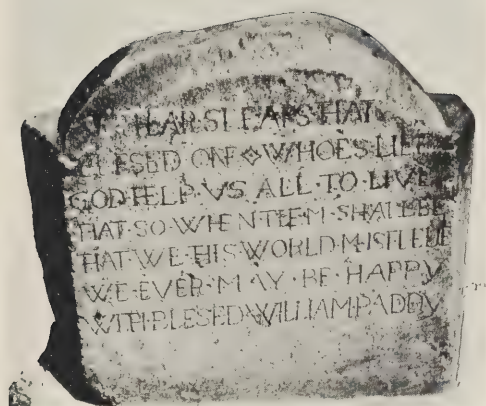 HEAR·SLEAPS·THAT
BLESED ONE ◇ WHOES·LIEF
GOD·HELP·VS ALL·TO·LIVE
THAT·SO·WHEN·TIEM·SHALL·BE
THAT·WE·THIS·WORLD·MUST·LIEUE
WE·EVER·MAY·BE·HAPPY
WITH·BLESED·WILLIAM·PADDY